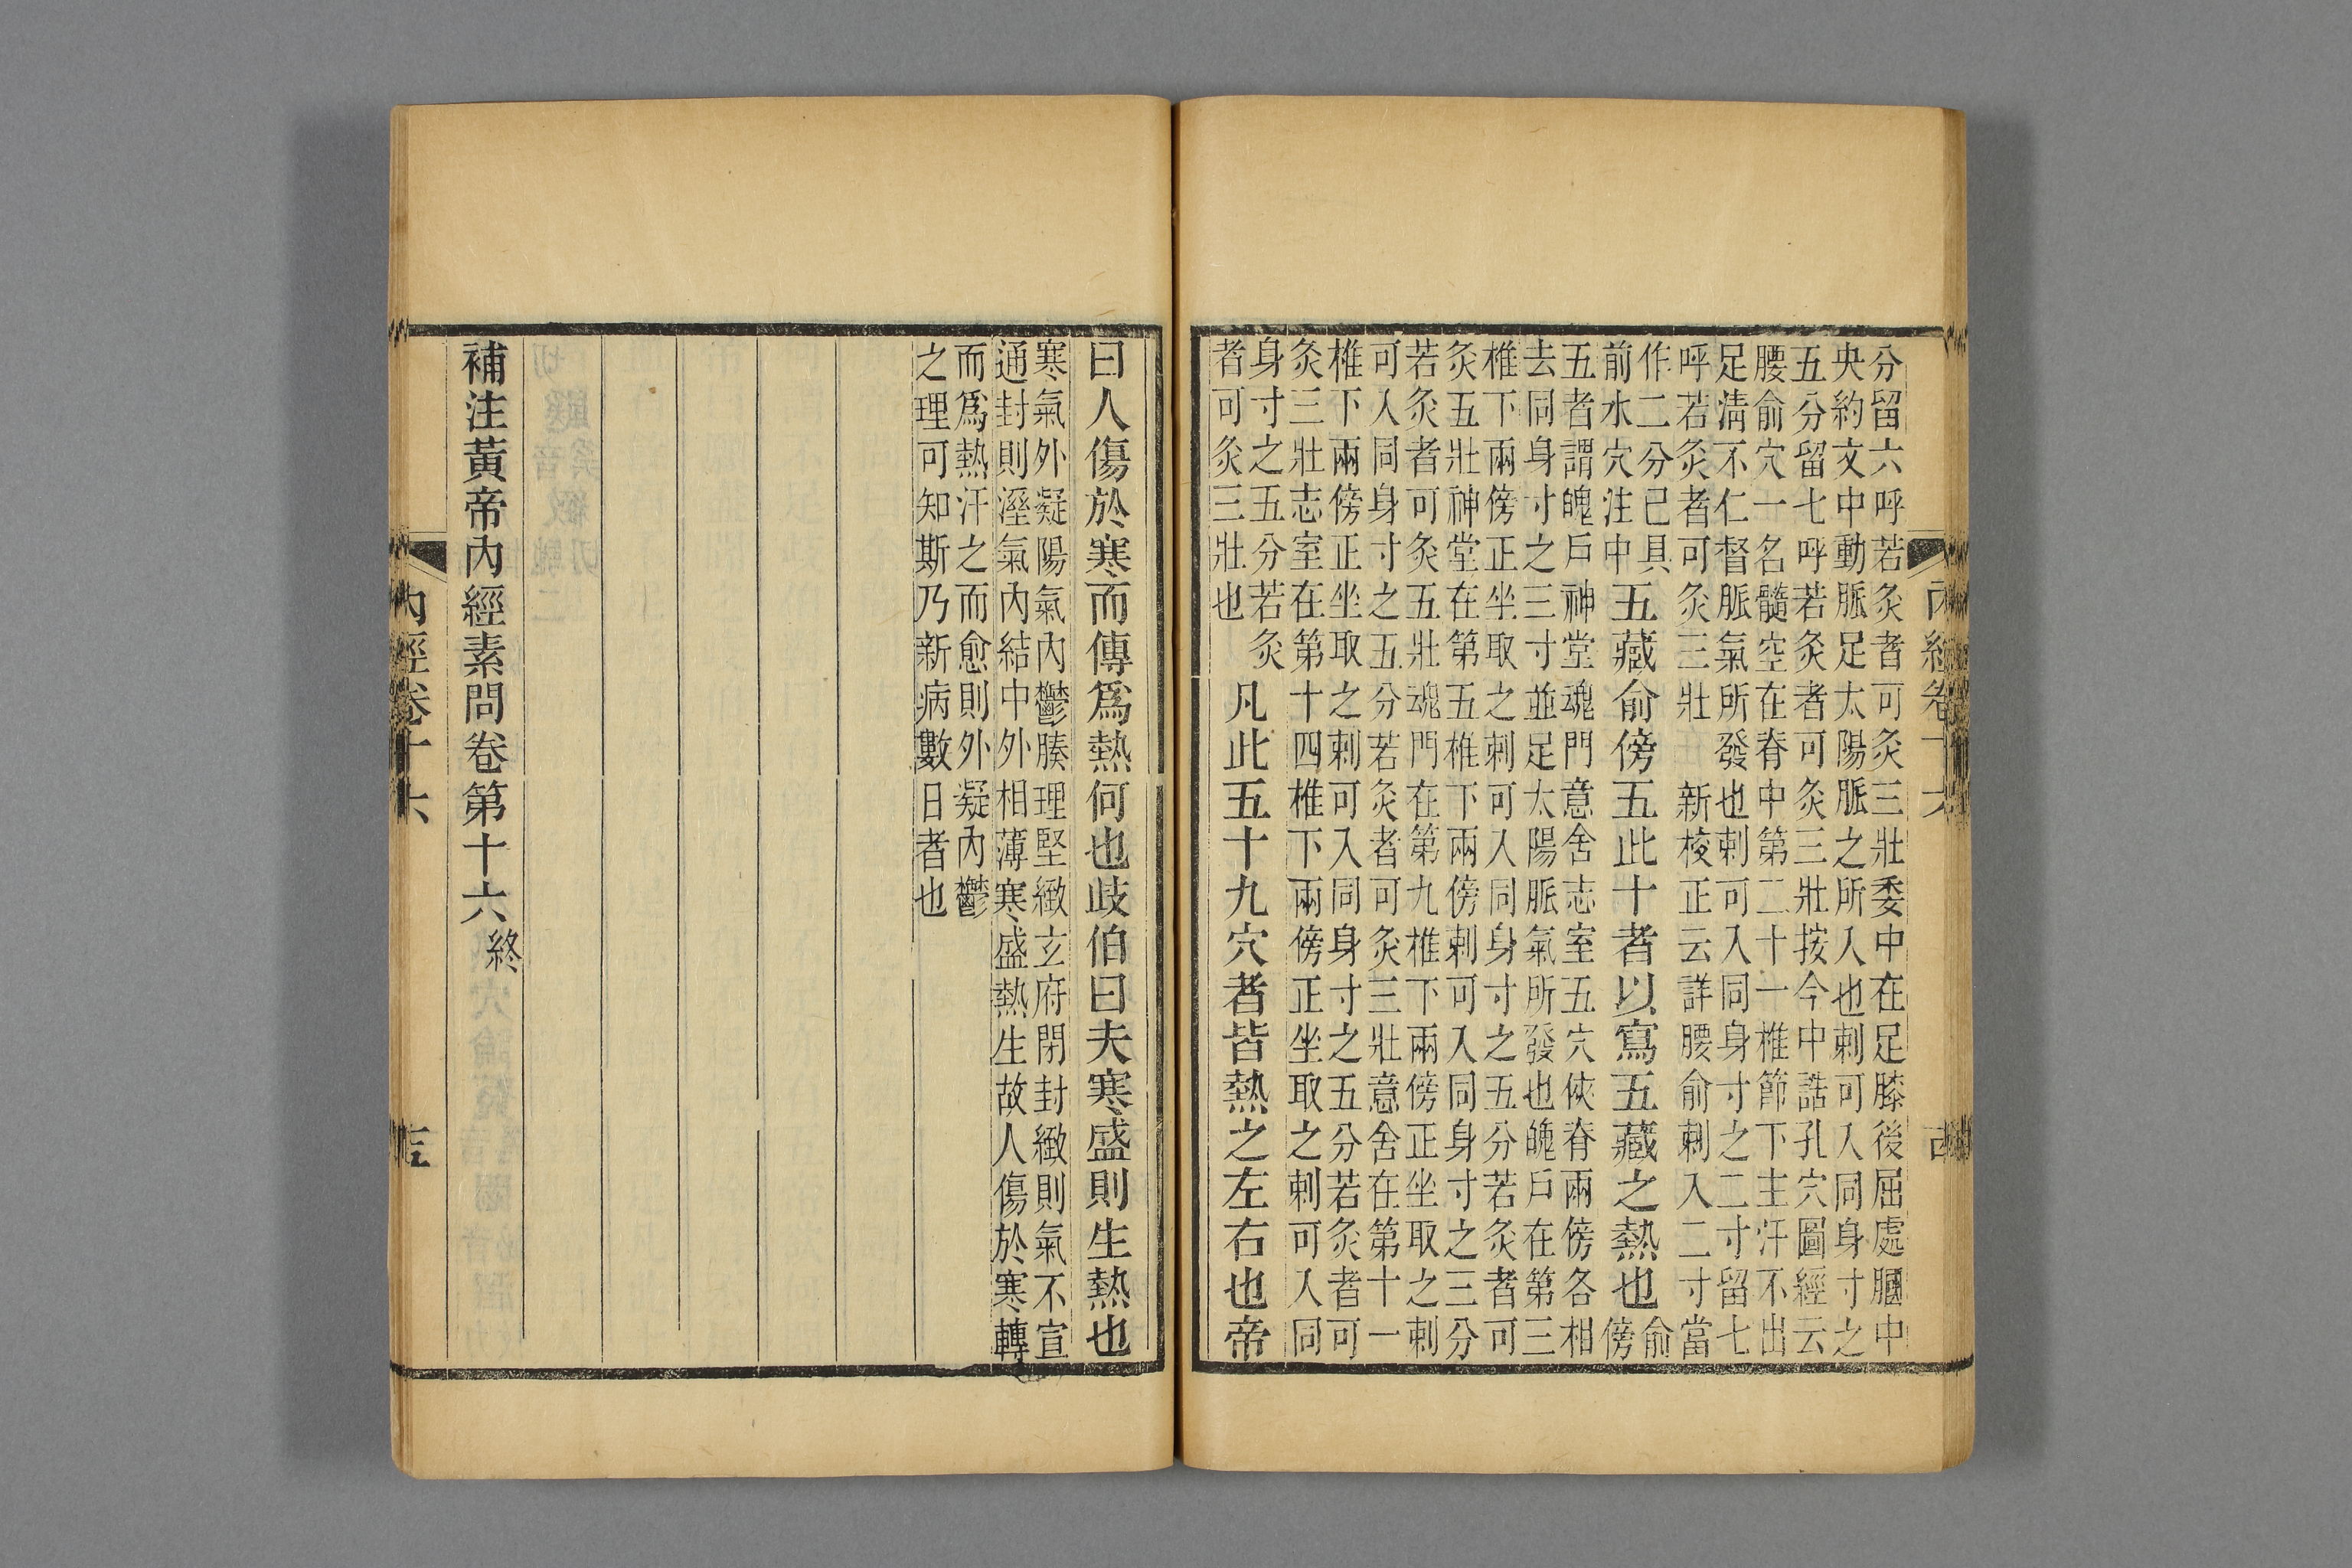 分留六呼若灸者可灸三壯委中在足膝後屈處膕中
央約文中動脈足太陽脈之所入也刺可入同身寸之
五分留七呼若灸者可灸三壯按今中誥孔穴圖經云
腰俞穴一名髓空在脊中第二十一椎節下主汗不出
足清不仁督脈氣所發也刺可入同身寸之二寸留七
呼若灸者可灸三壯 新校正云詳腰俞刺入二寸當
作二分已具
前水穴注中
五藏俞傍五此十者以寫五藏之熱也
俞
傍
五者謂魄戶神堂魂門意舍志室五穴俠脊兩傍各相
去同身寸之三寸並足太陽脈氣所發也魄戶在第三
椎下兩傍正坐取之刺可入同身寸之五分若灸者可
灸五壯神堂在第五椎下兩傍刺可入同身寸之三分
若灸者可灸五壯魂門在第九椎下兩傍正坐取之刺
可入同身寸之五分若灸者可灸三壯意舍在第十一
椎下兩傍正坐取之刺可入同身寸之五分若灸者可
灸三壯志室在第十四椎下兩傍正坐取之刺可入同
身寸之五分若灸
者可灸三壯也
凡此五十九穴者皆熱之左右也帝
曰人傷於寒而傳爲熱何也歧伯曰夫寒盛則生熱也
寒氣外凝陽氣內鬱腠理堅緻玄府閉封緻則氣不宣
通封則溼氣內結中外相薄寒盛熱生故人傷於寒轉
而爲熱汗之而愈則外凝內鬱
之理可知斯乃新病數日者也
補注黃帝內經素問卷第十六終
內經卷十六